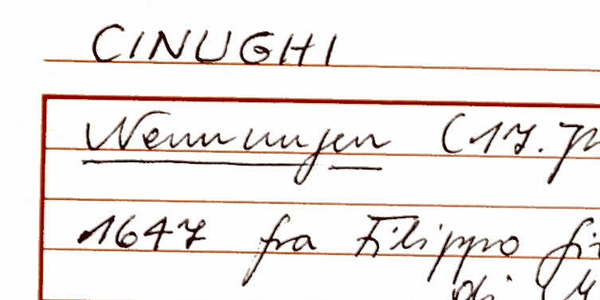 CINUGHI
Nennungen (17.
1647 fra Filippo
di